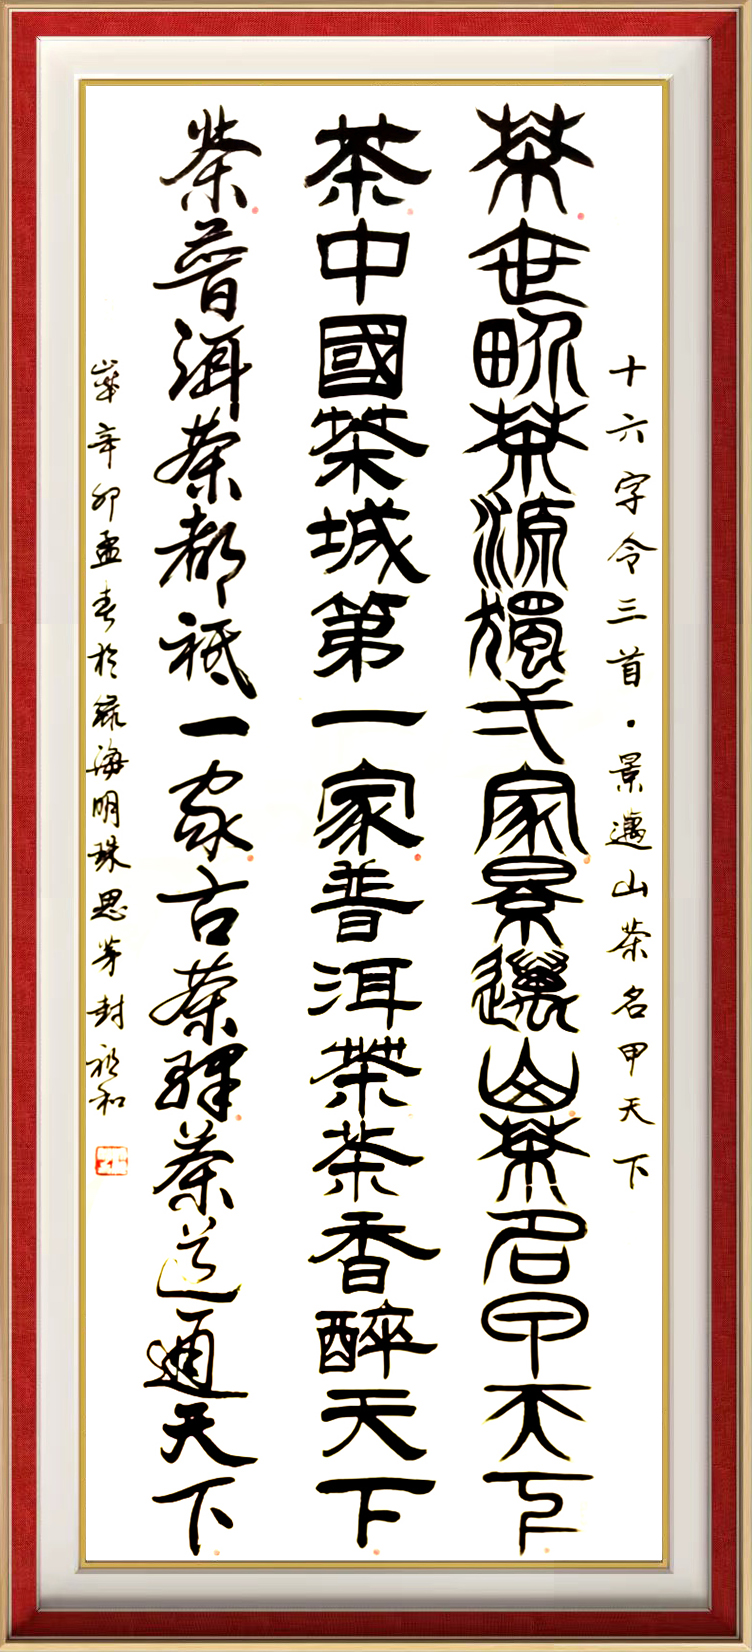 十六字令三首·景邁山茶名甲天下
茶世界茶源獨弌家景邁山茶名甲天下
茶中國茶城第一家普洱茶茶香醉天下
茶普洱茶都祗一家古茶驛茶道通天下
歲辛卯孟春於綠海明珠思茅封祖和